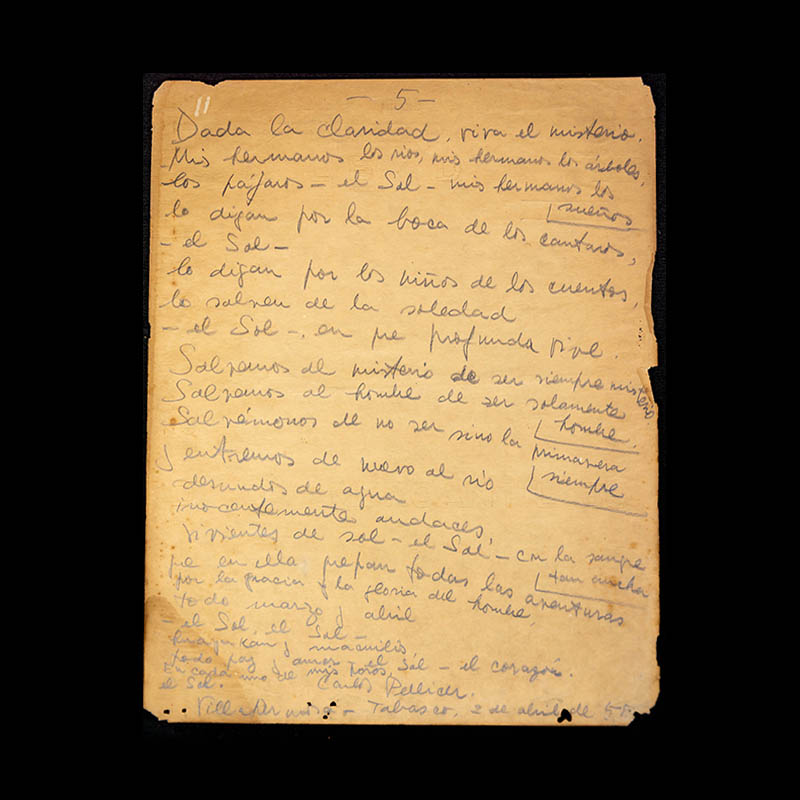 11
- 5 -
Dada la claridad, viva el misterio.
Mis hermanos los ríos, mis hermanos los árboles,
los pájaros - el Sol - mis hermanos los
sueños
lo digan por la boca de los cantaros,
- el Sol -
lo digan por los niños de los cuentos,
lo salven de la soledad
- el Sol -, en pe profunda vive.
Salvemos al misterio de ser siempre misterio
Salvemos al hombre de ser solamente
hombre.
Salvémonos de no ser sino la primavera
siempre
y entremos de nuevo al río
desnudos de agua
inocentemente audaces,
vivientes de sol - el Sol - con la sangre
tan ancha
pe en ella pepan todas las aventuras
por la gracia y la gloria del hombre,
todo marzo y abril
- el Sol, el Sol -
y macuilis,
todo paz y amor - el Sol - el corazón.
En cada uno de mis poros,
el Sol.
Carlos Pellicer.
Villahermosa - Tabasco, 2 de abril de 55